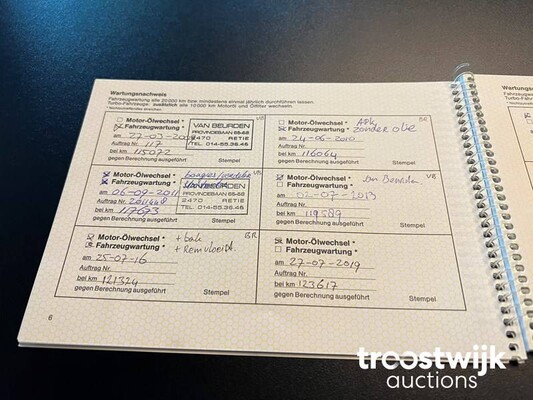 Wartungsnachweis
Fahrzeugwartung alle 20 000 km bzw mindestens einmal jährlich durchführen lassen.
Turbo-Fahrzeuge: zusätzlich alle 10 000 km Motoröl und Ölfilter wechseln.
Motor-Ölwechsel *
Fahrzeugwartung *
am 22-03-20
Auftrag Nr. 117
bei km 115072
gegen Berechnung ausgeführt
Stempel
VAN BEURDEN
PROVINCIEBAAN 65-68
2470 RETIE
TEL. 014-55.36.45
Motor-Ölwechsel * APK
Fahrzeugwartung * zonder olie
BR
am 24-06-2010
Auftrag Nr.
bei km 116064
gegen Berechnung ausgeführt
Stempel
Motor-Ölwechsel *
Fahrzeugwartung *
am 06-09-2011
Auftrag Nr.
bei km 117673
gegen Berechnung ausgeführt
Stempel
BEURDEN
PROVINCIEBAAN 65-68
2470 RETIE
TEL. 014-55.36.45
Motor-Ölwechsel *
Fahrzeugwartung *
VB
am 02-07-2013
Auftrag Nr.
bei km 119589
gegen Berechnung ausgeführt
Stempel
Motor-Ölwechsel * + bak
BR
Fahrzeugwartung * + Remvloeist.
am 25-07-16
Auftrag Nr.
bei km 121324
gegen Berechnung ausgeführt
Stempel
Motor-Ölwechsel *
Fahrzeugwartung *
am 27-07-2019
Auftrag Nr.
bei km 123617
gegen Berechnung ausgeführt
Stempel
6
troostwijk
auctions